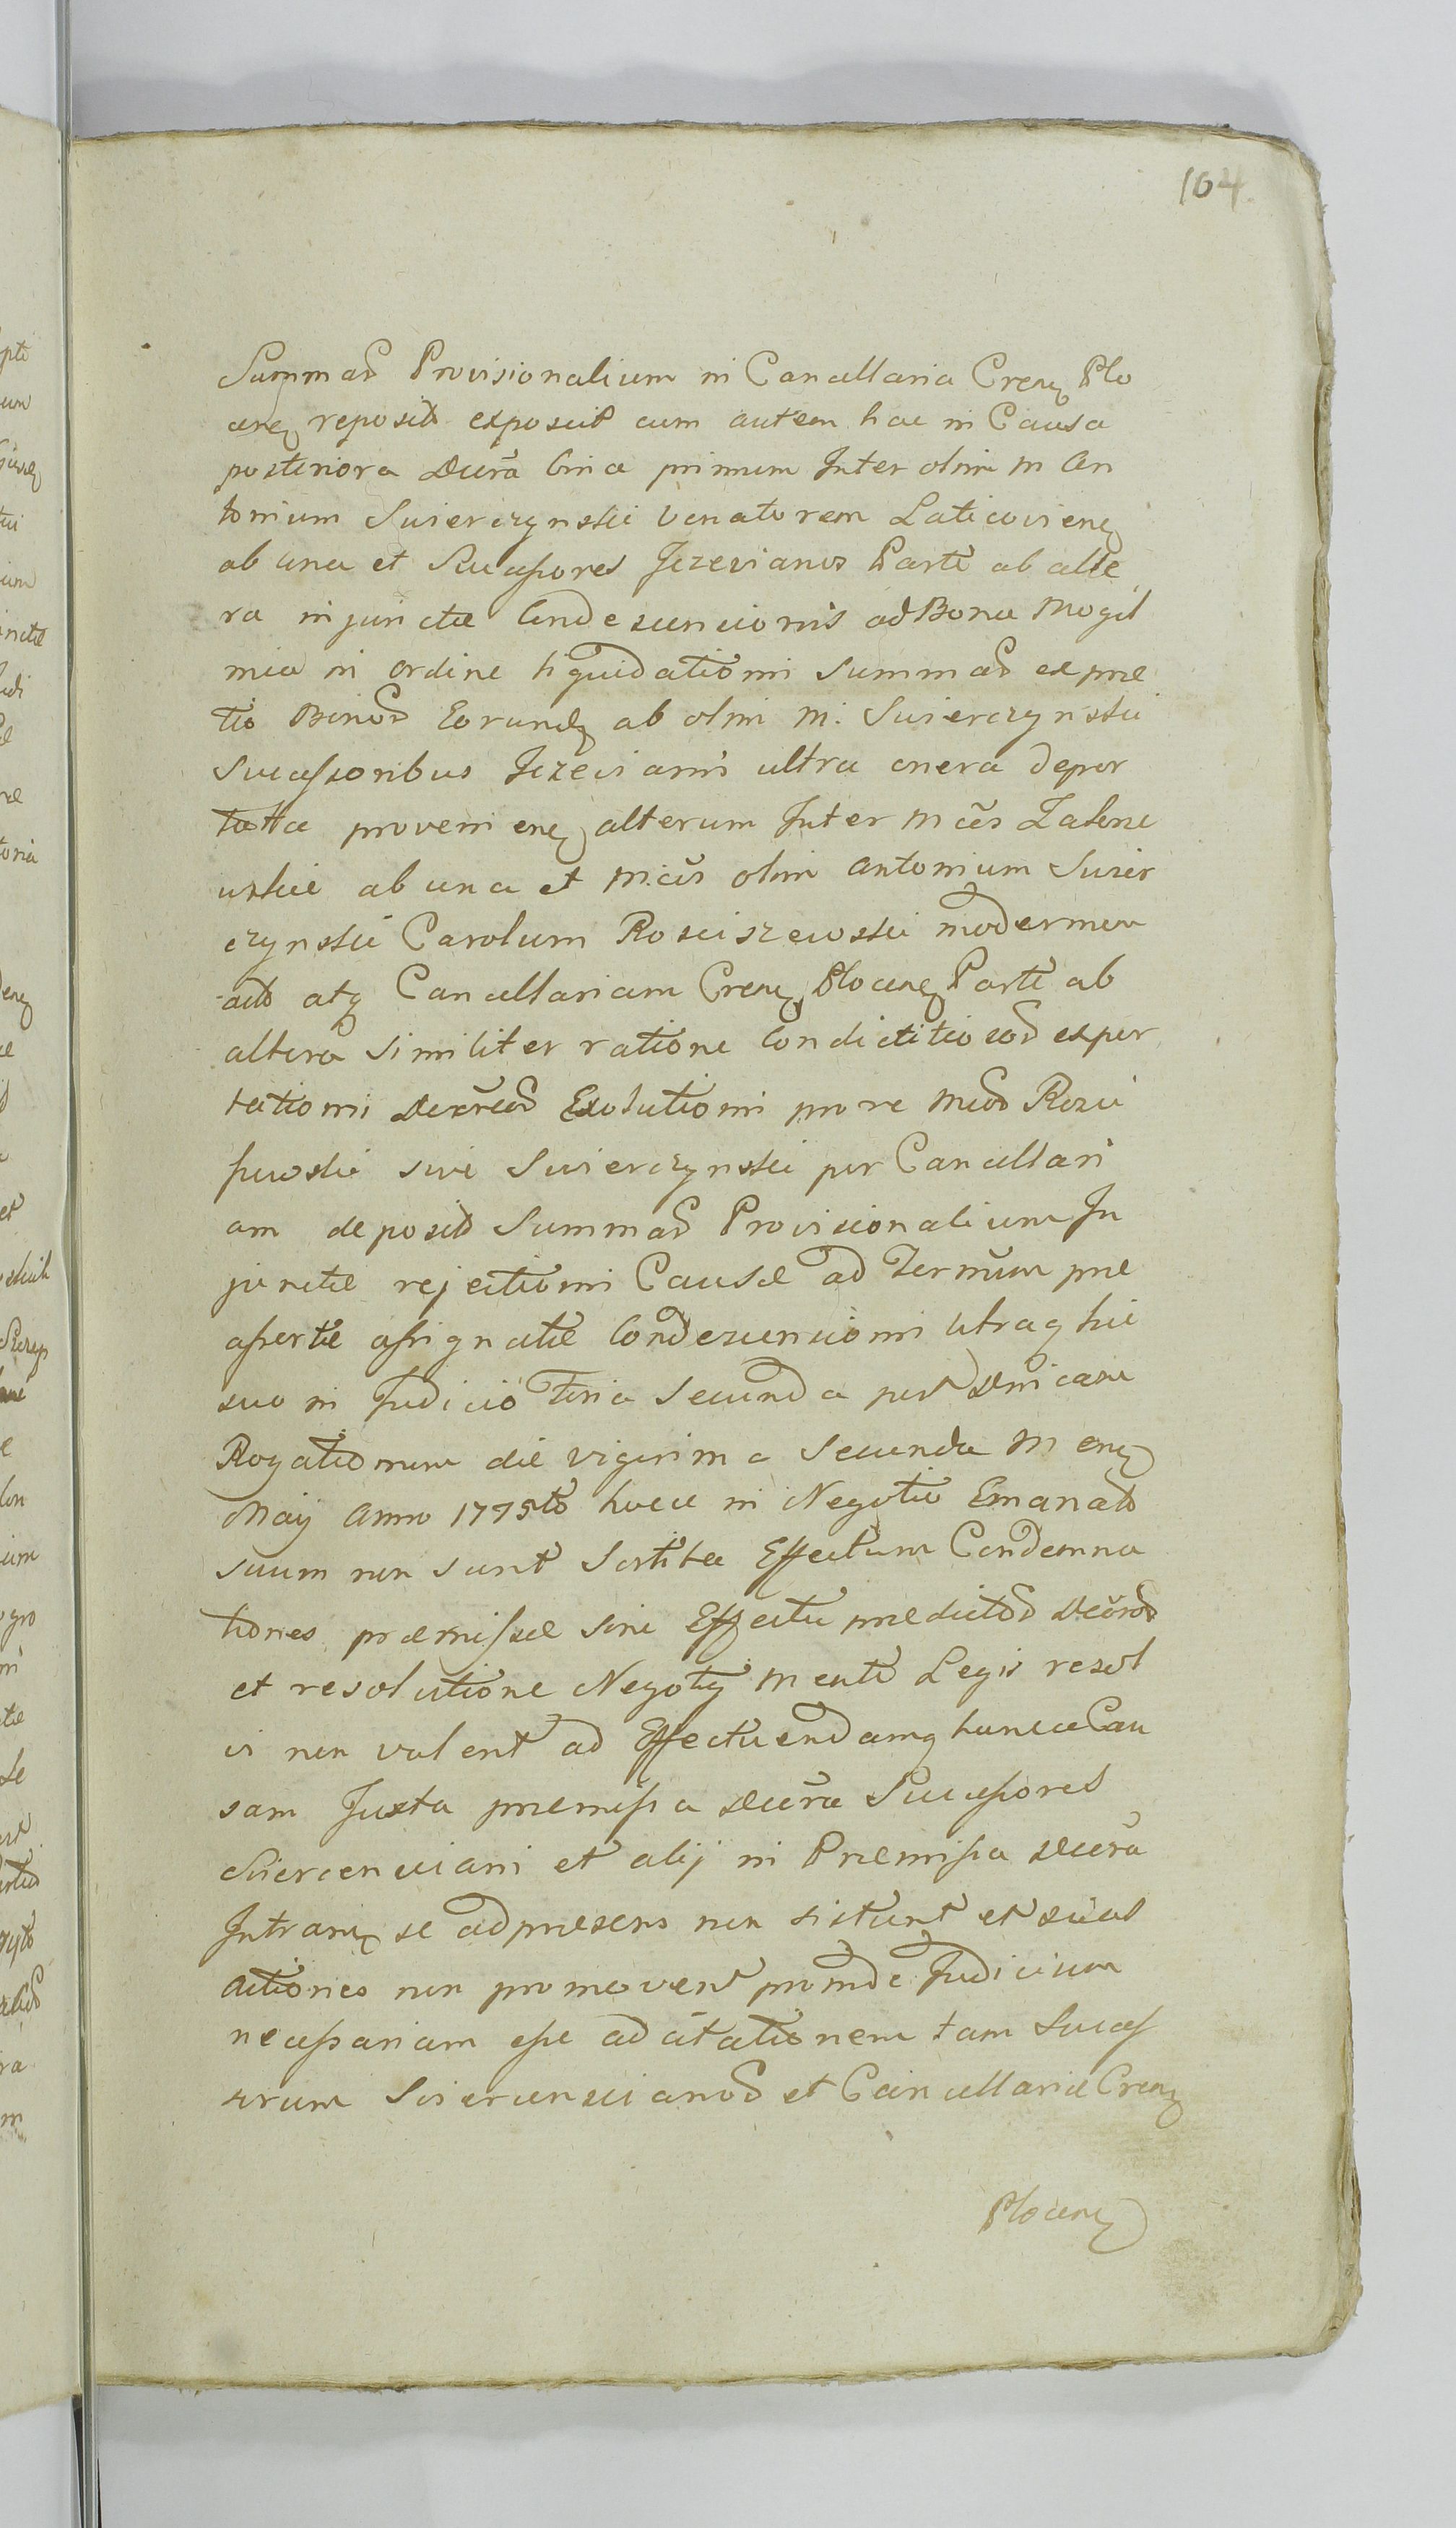 104
Summar Provisionalium in Cancellaria Crens Plo
censq reposit exposcit cum autem hac in Causa
posteriora Decra bina primum Inter olim M An
tonium Swierczynski Venatorem Laticoviens
ab una et Successores Jezevianos Parte ab alte
ra injunctae Condescensionis ad Bona Mogil
nica in ordine liquidationis Summar ex prae
tio Bonor Eorundq ab olim M. Swierczynski
Successoribus Jezevianis ultra onera depor
tata provenienq alterum Inter Mcos
ab una et Mcos olim Antonium Swier
czynski Carolum Rosciszewski modernum
atq Cancellariam Crensq Plocensq Parte ab
altera similiter ratione
Decretor Exolutionis pro re Mcor Rosci
szewski sive Swierczynski per Cancellari
am deposit Summar Provisionalium In
junctae rejectionis Causae ad Terminum prae
assertae assignatae Condescensionis utraq hic
suo in Judicio Feria Secunda post Dnicam
Rogationum die vigesima Secunda Mens
Maij Anno 1775to hocce in Negotio Emanat
suum non sunt Sortita Effectum Condemna
tiones praemissae sine Effectu praedictor Decror
et resolutione Negotij Mente Legis resol
vi non valent ad Effectuendamq hancce Cau
sam Juxta praemissa Decra Successores
Swierczensciani et alij in Praemissa Decra
Intrantq se ad praesens non sistunt et suas
Actiones non promovent proinde Judicium
necessariam esse adcitationem tam Success
orum Swierczenscianor et Cancellariae Crens
Plocens